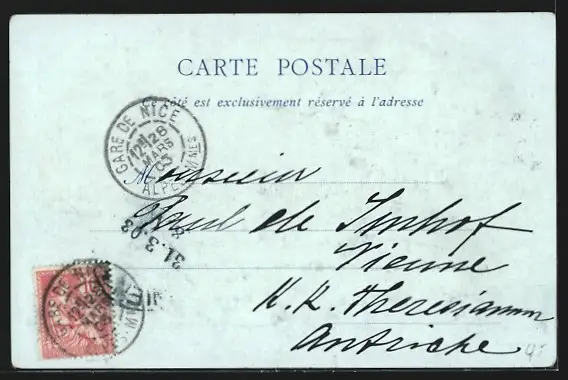 CARTE POSTALE
Ce côté est exclusivement réservé à l'adresse
GARE DE NICE
28
MARS
03
ALPES-MMES
Monsieur
Paul de Imhof
Vienne
K. K. Theresianum
Autriche
31.3.03
GARE DE NICE